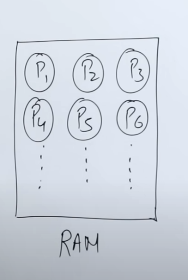 P1 P2 P3
P4 P5 P6
RAM